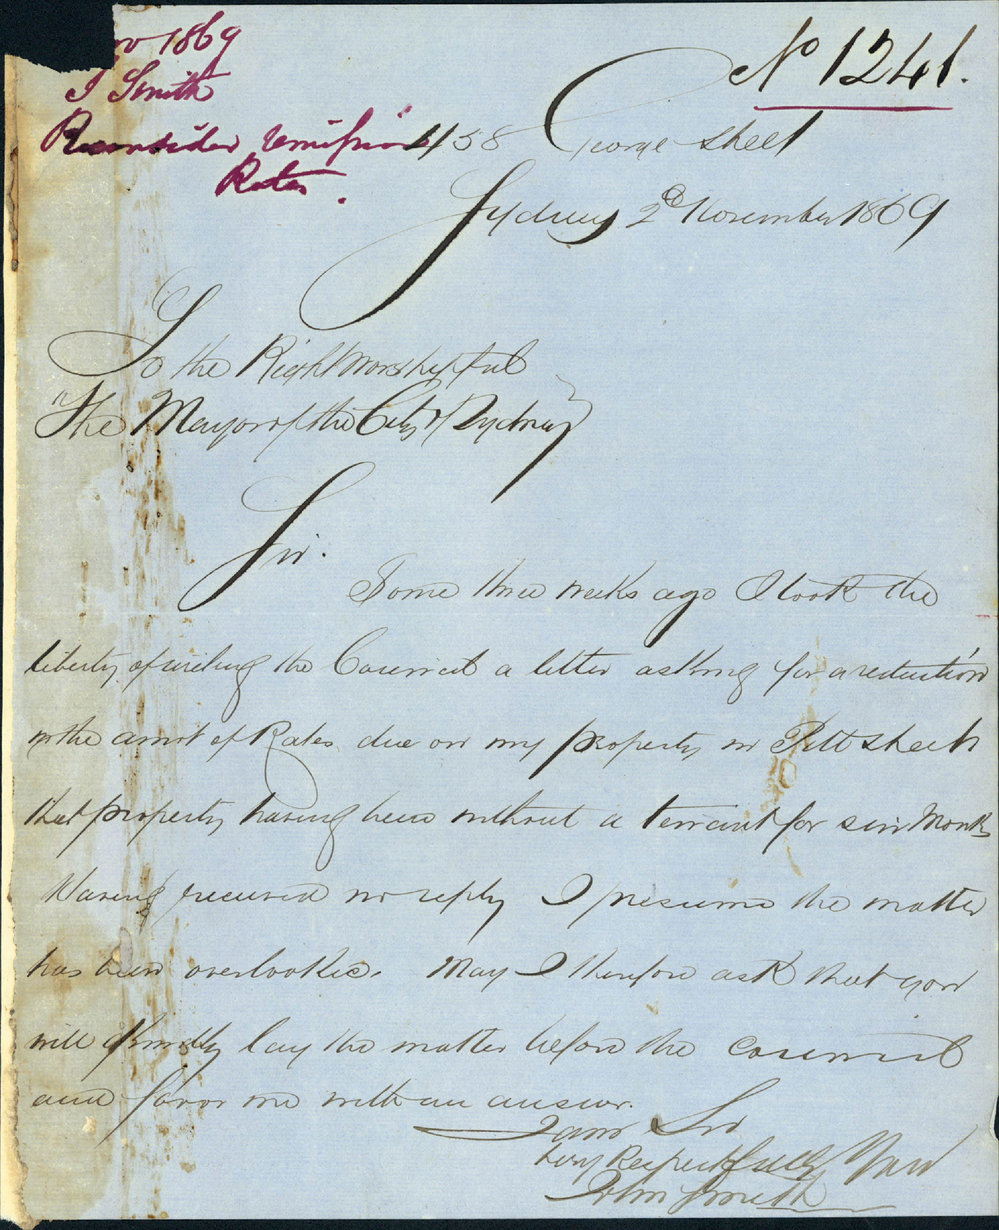 Nov 1869
J Smith
Reconsider remission
Rates.
No 1241.
458 George Street
Sydney 2d November 1869
To the Right Worshipful
"The Mayor of the City of Sydney
Sir.
Some three weeks ago I took the
liberty of writing the Council a letter asking for a reduction
in the amnt of Rates due on my property in Pitt Street
that property having been without a tennant for six Months
Having received no reply I presume the matter
has been overlooked. May I therefore ask that you
will kindly lay the matter before the council
and favor me with an answer.
I am Sir
Very Respectfully Yours
John Smith